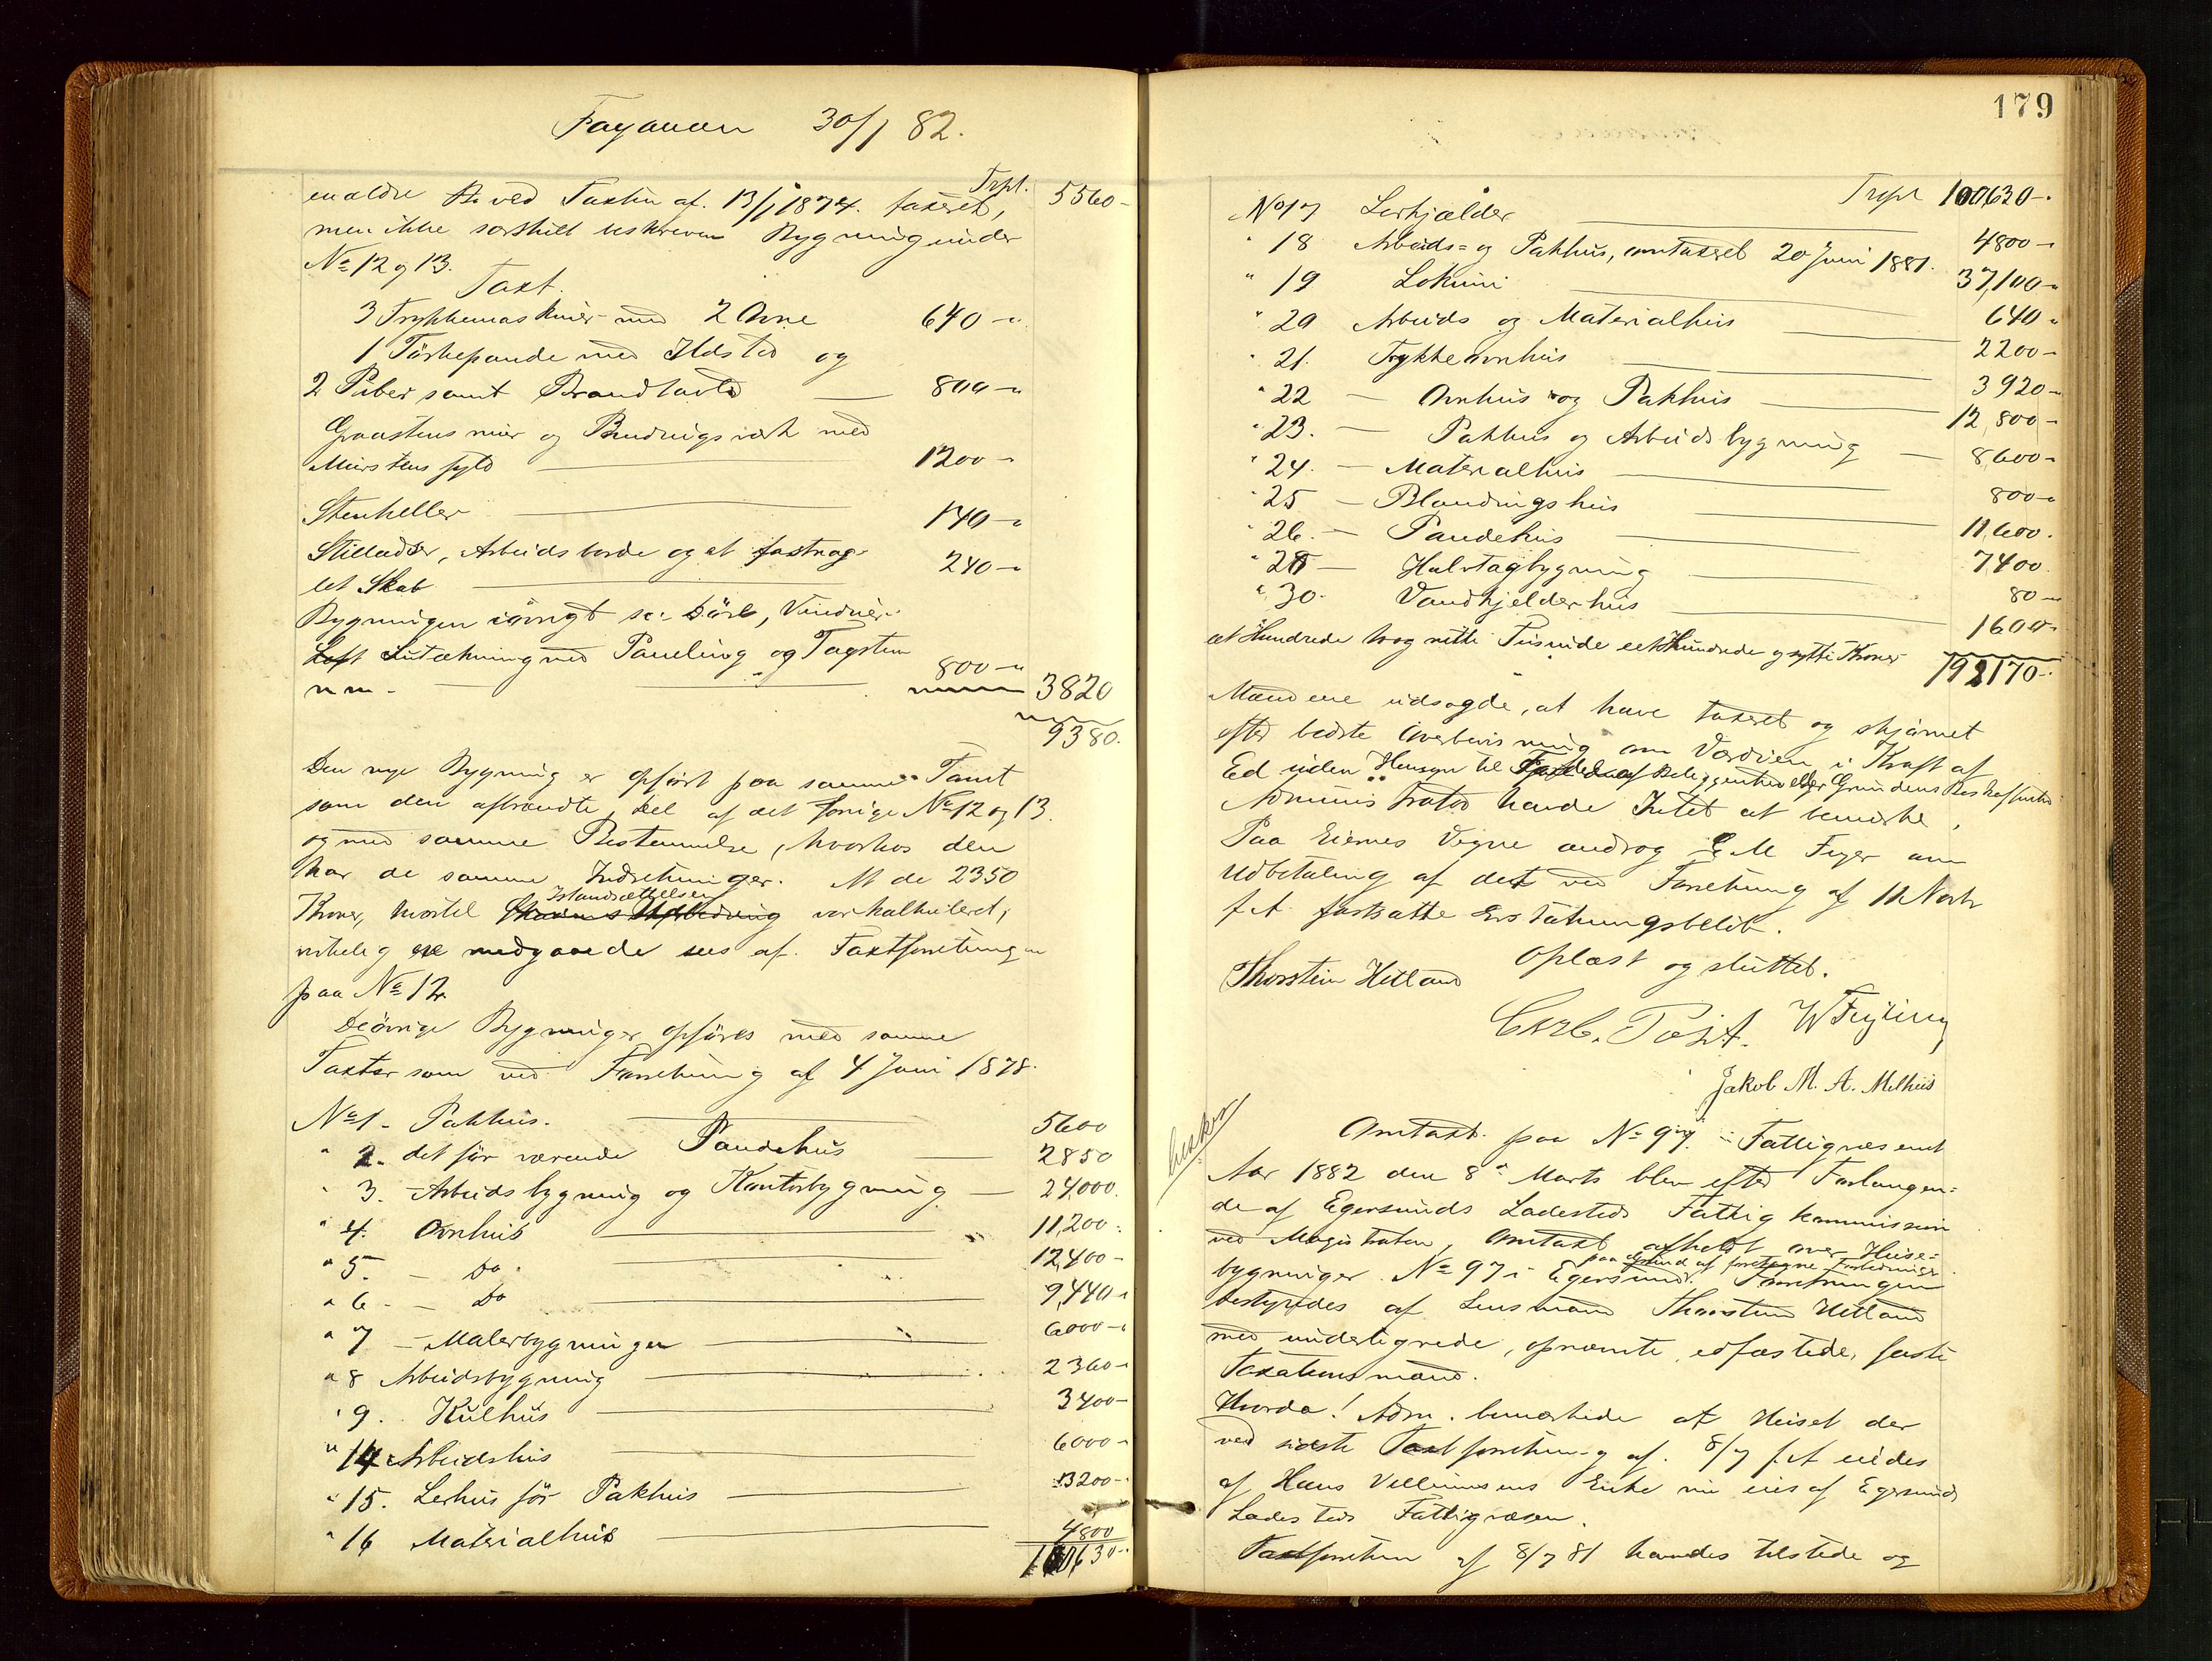 Fayancen 30/1 82.
Trpt. 5560-
en ældre ved Taxten af. 13/1 1874. taxeret,
men ikke særskilt beskreven Bygning under
No 12 og 13.
Taxt.
3 Trykkemaskiner med 2 Ovne 640-"
1 Tørkepande med Ildsted og
2 Piber samt Brandtavle 800-"
Graastens mur og Bindingsværk med
Murstens fyld 1200-
Stenheller 140-"
Stilladser, Arbeidsborde og et fastnag-
let Skab 240-"
Bygningen iøvrigt s: Døre, Vinduer
Loft Lutækning med Paneling og Tagsten
m m- 800-" 3820
9380.
Den nye Bygning er opført paa samme Tomt
som den afbrændte Del af det forrige No 12 og 13.
og med samme Bestemmelse, hvorhos den
har de samme Indretninger. At de 2350
Kroner, hvortil Istandsættelsen var kalkuleret,
virkelig ere medgaaede sees af Taxtforretningen
paa No 12.
De øvrige Bygninger opføres med samme
Taxter som ved Forretning af 4 Juni 1878.
No 1 - Pakhus. 5600
" 2. det før værende Pandehus 2850
" 3. - Arbeidsbygning og Kontorbygning 24,000.
" 4. Ovnhus 11,200.
" 5. - Do. 12,400-
" 6. - Do 9,440-"
" 7 - Malerbygningen 6000-"
" 8 Arbeidsbygning 2360-"
" 9. Kulhus 3400-
" 14 Arbeidshus 6000-
" 15. Lerhus før Pakhus 13200-
" 16 Materialhus 4800
100,630-
179
Trpt 100,630-.
No 17 Lerkjælder 4800-"
" 18 Arbeids- og Pakhus, omtaxeret 20 Juni 1881. 37,100-"
" 19 Lokum 640"
" 20 Arbeids og Materialhus 2200-
" 21. Trykkeovnhus 3920-
" 22 - Ovnhus og Pakhus 12,800-
" 23. - Pakhus og Arbeidsbygning 8,600-
" 24. - Materialhus 800-"
" 25 - Blandingshus 11,600.
" 26. - Pandehus 7400
" 28 - Halvtagbygning 80-"
" 30. Vandkjelderhus 1600-
et Hundrede to og nitti Tusinde et Hundrede og sytti Kroner 192170-.
Mændene udsagde, at have taxeret og skjønnet
efter bedste Overbevisning om Værdien i Kraft af
Ed uden Hensyn til Beliggenhed eller Grundens Beskaffenhed
Administrator havde Intet at bemærke.
Paa Eiernes Vegne androg E M Feyer om
Udbetaling af det ved Forretning af 12 Novbr
f.A. fastsatte Erstatningsbeløb.
Oplæst og sluttet.
Thorstein Hetland
Carl. Post. W Feyling
Jakob M. A. Melhus
Omtaxt. paa No 97. Fattigvæsenet
Aar 1882 den 8de Marts blev efter Forlangen-
de af Egersunds Ladesteds Fattigkommission
ved Magistraten, Omtaxt afholdt over Huse-
paa Grund af foretagne Forbedringer
bygninger No 97 i Egersund. Forretningen
bestyredes af Lensmand Thorstein Hetland
med undertegnede, opnævnte, edfæstede, faste
Taxationsmænd.
Hvorda! Adm. bemærkede at Huset der
ved sidste Taxtforretning af. 8/7 f.A eiedes
af Hans Villumsens Enke nu eies af Egersunds
Ladesteds Fattigvæsen.
Taxtforretn af 8/7 81 havdes tilstede og